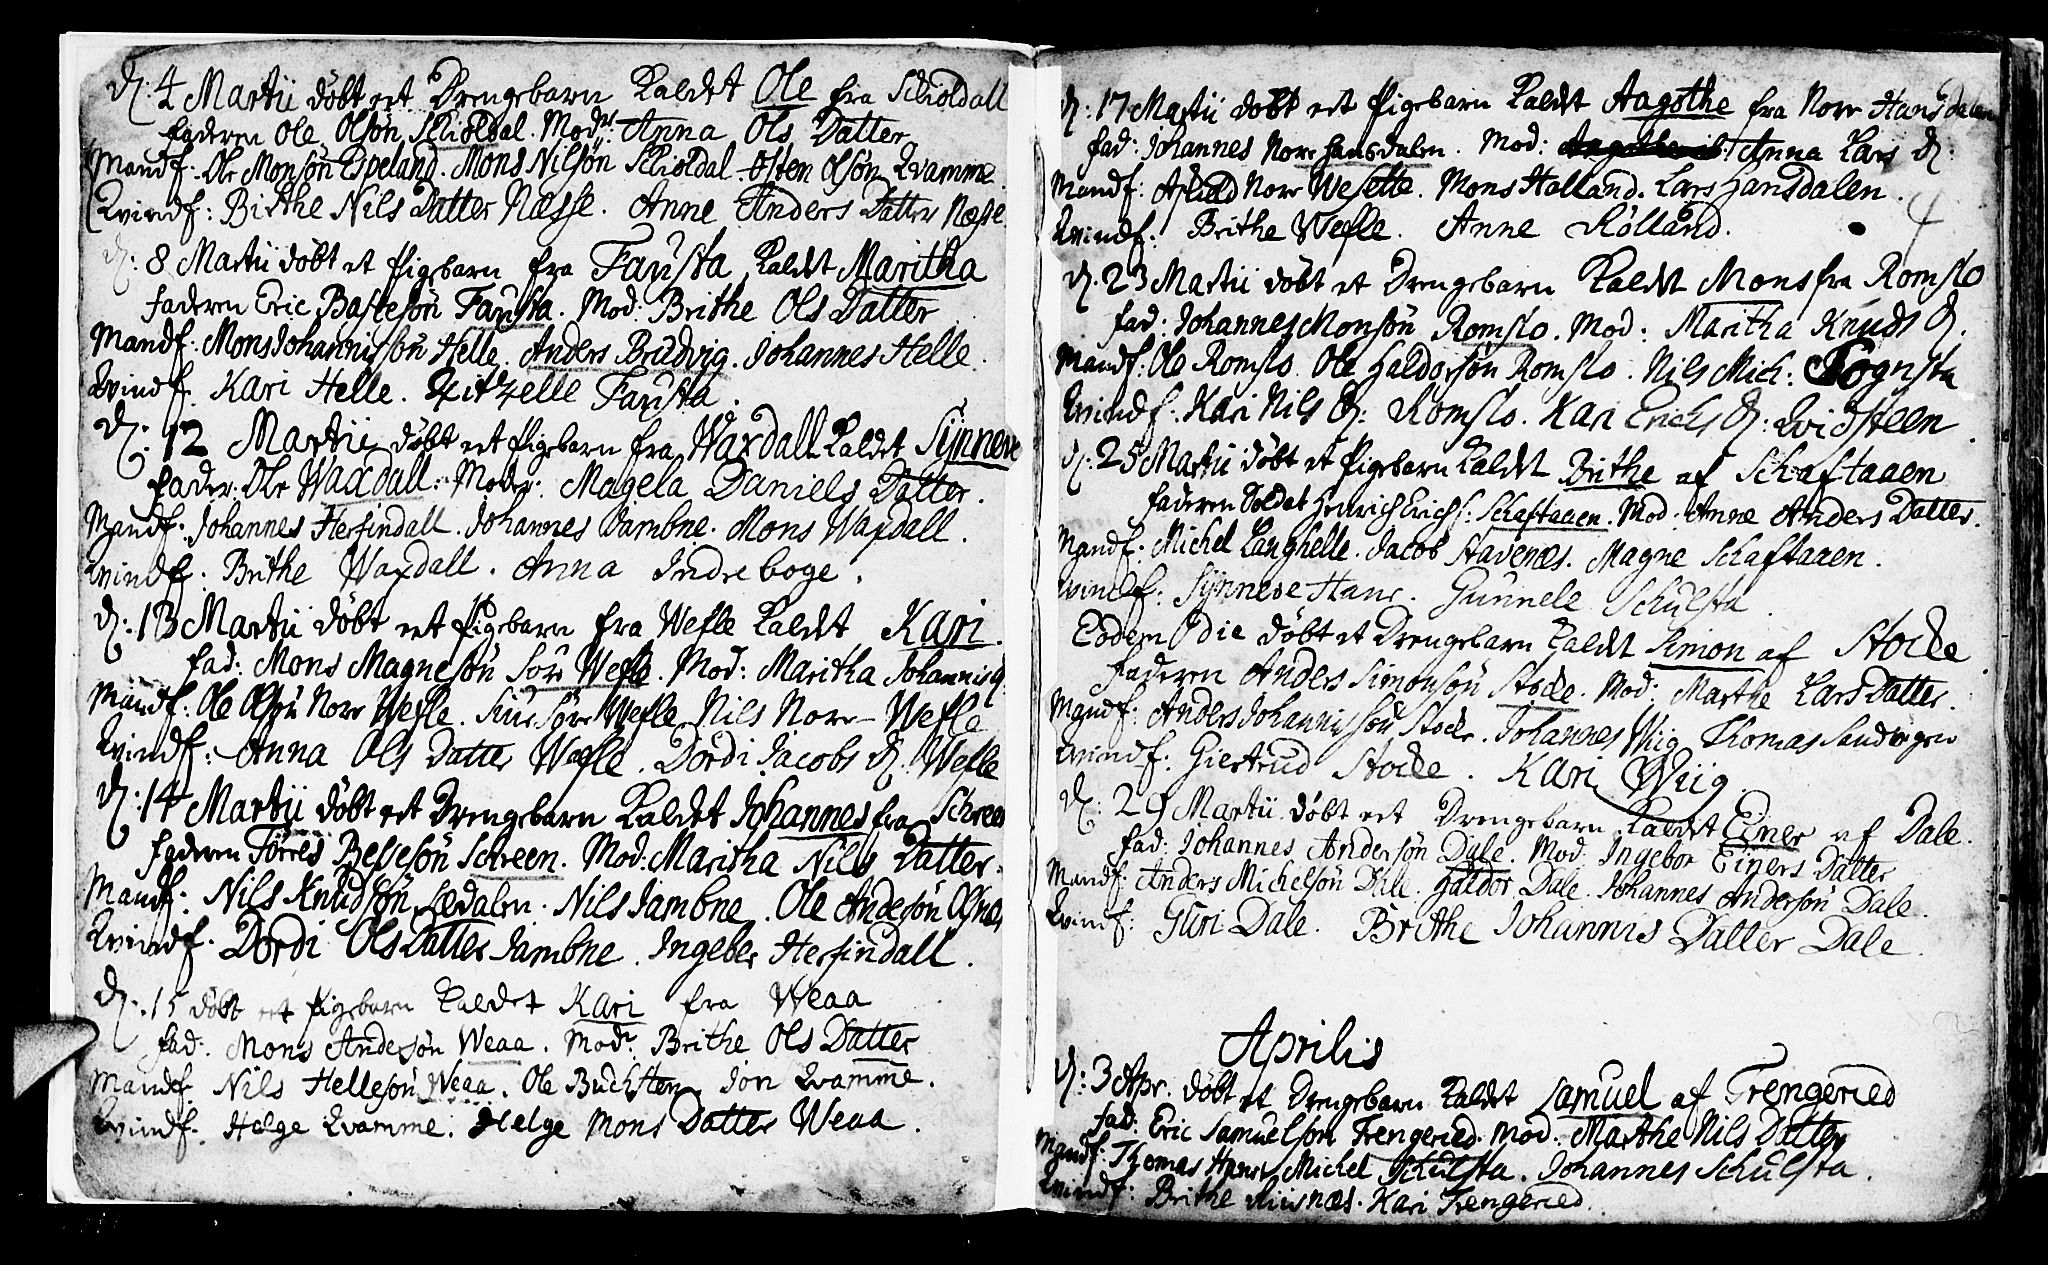 d: 4 Martii döbt eet Drengebarn kaldet Ole fra Schioldall
faderen Ole Olsön Schioldal. Modr: Anna Ols Datter
Mandf: Ole Monsön Espeland. Mons Nilsön Schioldal. Osten Olsön Qvamme.
Qvindf: Birthe Nils Datter Næsse. Anne Anders Datter Næsse.
d: 8 Martii döbt et Pigbarn fra Fausta kaldet Maritha
faderen Eric Bassesön Fausta. Mod: Brithe Ols Datter
Mandf: Mons Johannissön Helle. Anders Brudvig. Johannes Helle.
Qvindf. Kari Helle. Zitzelle Fausta.
d: 12 Martii döbt eet Pigebarn fra Waxdall kaldet Synneve
fader: Ole Waxdall. Moder: Magela Daniels Datter.
Mandf: Johannes Herfindall. Johannes Jambne. Mons Waxdall.
Qvindf: Brithe Waxdall. Anna Indreboge.
d: 13 Martii döbt eet Pigebarn fra Wefle kaldet Kari.
fad: Mons Magnesön Sör Wefle. Mod: Maritha Johannis d.
Mandf: Ole Olsön Norr Wefle. Siur Sörr Wefle. Nils Norr Wefle
Qvindf: Anna Ols Datter Wefle. Dordi Jacobs d: Wefle
d: 14 Martii döbt eet Drengebarn kaldet Johannes fra Schreen
faderen Torres Bessesön Schreen. Mod: Maritha Nils Datter.
Mandf: Nils Knudsön Sædalen. Nils Jambne. Ole Andersön
Qvindf. Dordi Ols Datter Jambne. Ingeber Herfindall.
d: 15 döbt eet Pigebarn kaldet Kari fra Weaa
fad: Mons Andersön Weaa. Modr: Brithe Ols Datter
Mandf. Nils Hellesön Weaa. Ole Buchsten Jon Qvamme.
Qvindf: Helge Qvamme. Helge Mons Datter Weaa.
d: 17 Martii döbt eet Pigebarn kaldet Aagothe fra Norr Hansdalen
fad: Johannes Norr Hansdalen. Mod: Anna Lars d:
Mandf: Norr Wesette. Mons Holland. Lars Hansdalen.
Qvindf: Brithe Wefle. Anne Rölland.
4
d. 23 Martii döbt et Drengebarn kaldet Mons fra Romslo
fad: Johannes Monsön Romslo. Mod: Maritha Knuds d.
Mandf: Ole Romslo. Ole Haldorsön Romslo. Nils Mich: Rognsta
Qvindf. Kari Nils d: Romslo. Kari Erichs d: Qvidsteen.
d: 25 Martii döbt et Pigebarn kaldet Brithe af Schaftaaen
faderen Soldat Henrich Erichs: Schaftaaen. Mod: Anne Anders Datter.
Mandf: Michel Langhelle. Jacob Stavenæs. Magne Schaftaaen.
Qvindf: Synneve Hane. Gunnele Schulsta.
Eodem die döbt et Drengebarn kaldt Simon af Stocke
faderen Anders Simonsön Stocke. Mod: Marthe Lars Datter.
Mandf: Anders Johannissön Stocke. Johannes Wiig Thomas Sandvigen
Qvindf: Giertrud Stocke. Kari Wiig.
d: 29 Martii döbt eet Drengebarn kaldet Einer af Dale.
fad: Johannes Andersön Dale. Mod: Ingebor Einers Datter
Mandf: Anders Michelsön Dale. Haldor Dale. Johannes Andersön Dale.
Qvindf: Guri Dale. Brithe Johannis Datter Dale.
Aprilis
d: 3 Apr. döbt et Drengebarn kaldet Samuel af Trengeried
fad: Eric Samuelson Trengeried. Mod: Marthe Nils Datter
Mandf: Thomas Hane. Michel Schulsta. Johannes Schulsta.
Qvindf: Brithe Riisnæs. Kari Trengeried.